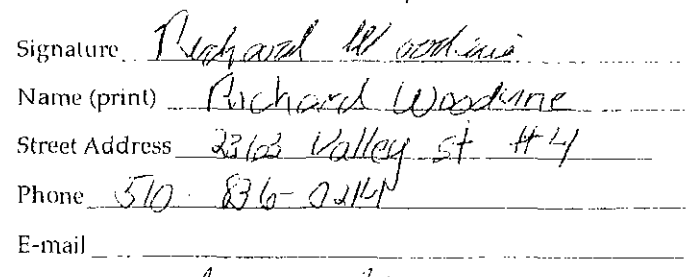 Signature Richard Woodvine
Name (print) Richard Woodvine
Street Address Valley St #4
Phone 510
E-mail